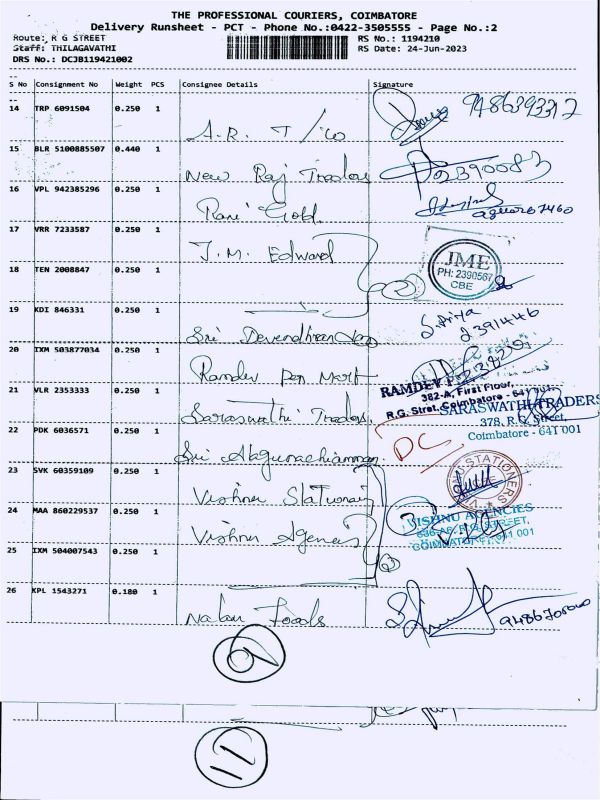 THE PROFESSIONAL COURIERS, COIMBATORE
Delivery Runsheet - PCT - Phone No.:0422-3505555 - Page No.:2
Route: R G STREET RS No.: 1194210
Staff: THILAGAVATHI RS Date: 24-Jun-2023
DRS No.: DCJB119421002
S No Consignment No Weight PCS Consignee Details Signature
14 TRP 6091504 0.250 1 A.R. T/Co
15 BLR 5100885507 0.440 1 New Raj Traders
16 VPL 942385296 0.250 1 Rani Gold
17 VRR 7233587 0.250 1 J.M. Edward
JME
PH: 2390567
CBE
18 TEN 2008847 0.250 1
19 KDI 846331 0.250 1 Sri
20 IXM 503877034 0.250 1 Ramdev Pen Mart
RAMDEV
382-A, First Floor,
R.G. Stret, Coimbatore - 641
21 VLR 2353333 0.250 1 Saraswathi Traders
SARASWATHI TRADERS
378, R.G. Street,
Coimbatore - 641 001
22 PDK 6036571 0.250 1 Sri
DC
23 SVK 60359109 0.250 1 Vishnu Stationary
STATIONERS
24 MAA 860229537 0.250 1 Vishnu Agencies
VISHNU AGENCIES
R.G. STREET,
COIMBATORE - 641 001
25 IXM 504007543 0.250 1
26 KPL 1543271 0.180 1 Nalan Foods
9
11